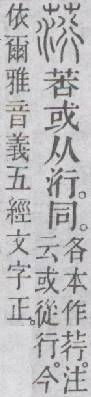 莕或从洐。同。各本作荇。注
云或從行今
依爾雅音義五經文字正。